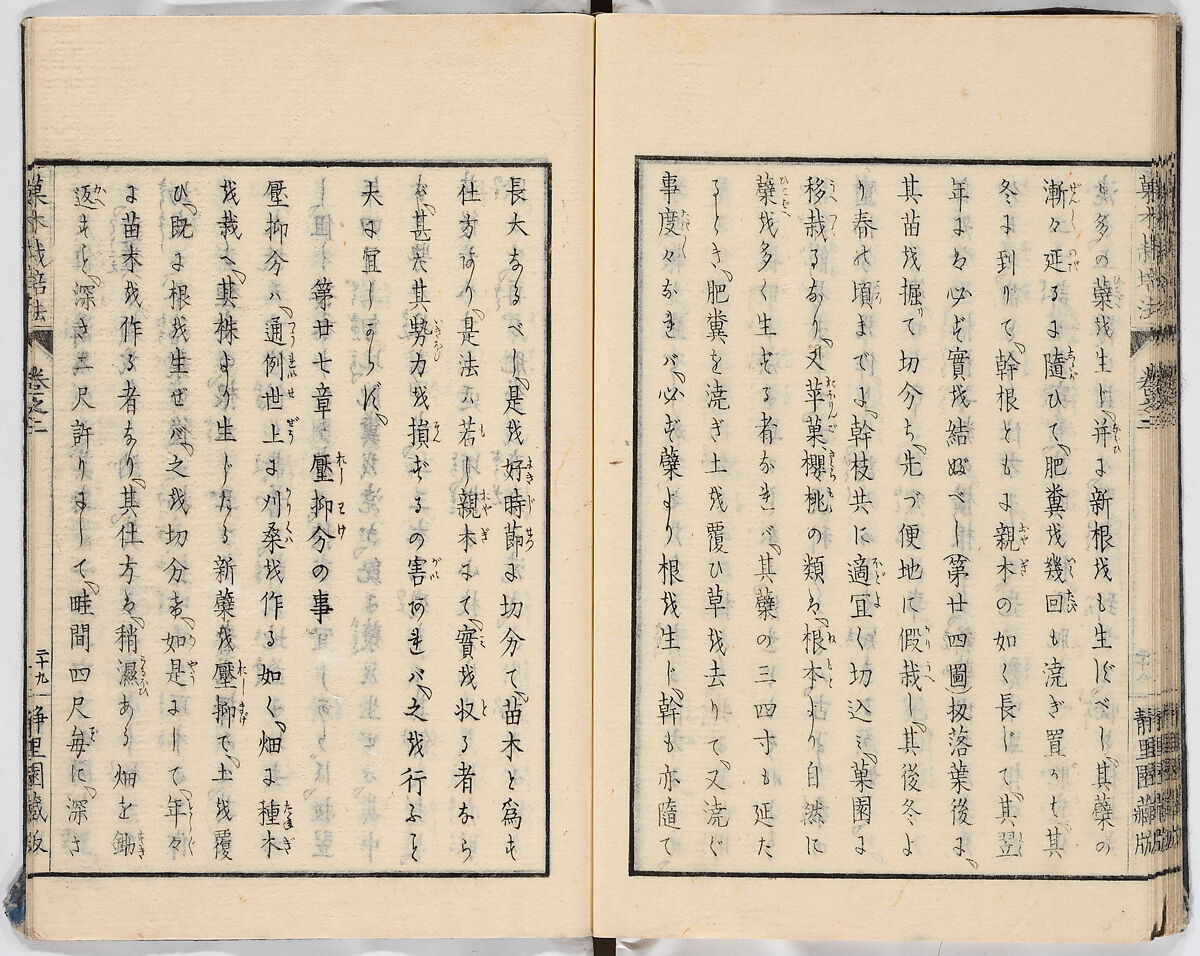 菓木栽培法 卷之二 靜里園藏版
り多の蘖を生じ、并に新根をも生ずべし、其蘖の
漸々延るに隨ひて、肥糞を幾回も澆ぎ置かば、其
冬に到りて、幹根ともに親木の如く長じて、其翌
年には必ず實を結ぶべし(第廿四圖)扨落葉後に、
其苗を掘て切分ち、先づ便地に假栽し、其後冬よ
り春の頃までに、幹枝共に適宜く切込み、菓園に
移栽るなり、又苹菓櫻桃の類は、根本より自然に
蘖を多く生ずる者なれば、其蘖の三四寸も延た
るとき、肥糞を澆ぎ土を覆ひ草を去りて、又澆ぐ
事度々なれば、必ず蘖より根を生じ、幹も亦隨て
長大なるべし、是を好時節に切分て、苗木と爲す
仕方なり、是法は若し親木にて、實を收る者なら
ば、甚だ其勢力を損ずるの害あれば、之を行ふこと
大に宜しからず、
第廿七章 壓抑分の事
壓抑分は、通例世上に刈桑を作る如く、畑に種木
を栽へ、其株より生じたる新蘖を壓抑て、土を覆
ひ、既に根を生ぜば、之を切分ち、如是にして、年々
に苗木を作る者なり、其仕方は、稍濕ある畑を鋤
返すこと、深さ三尺許りにして、畦間四尺毎に、深さ
菓木栽培法 卷之二 二十九 靜里園藏版